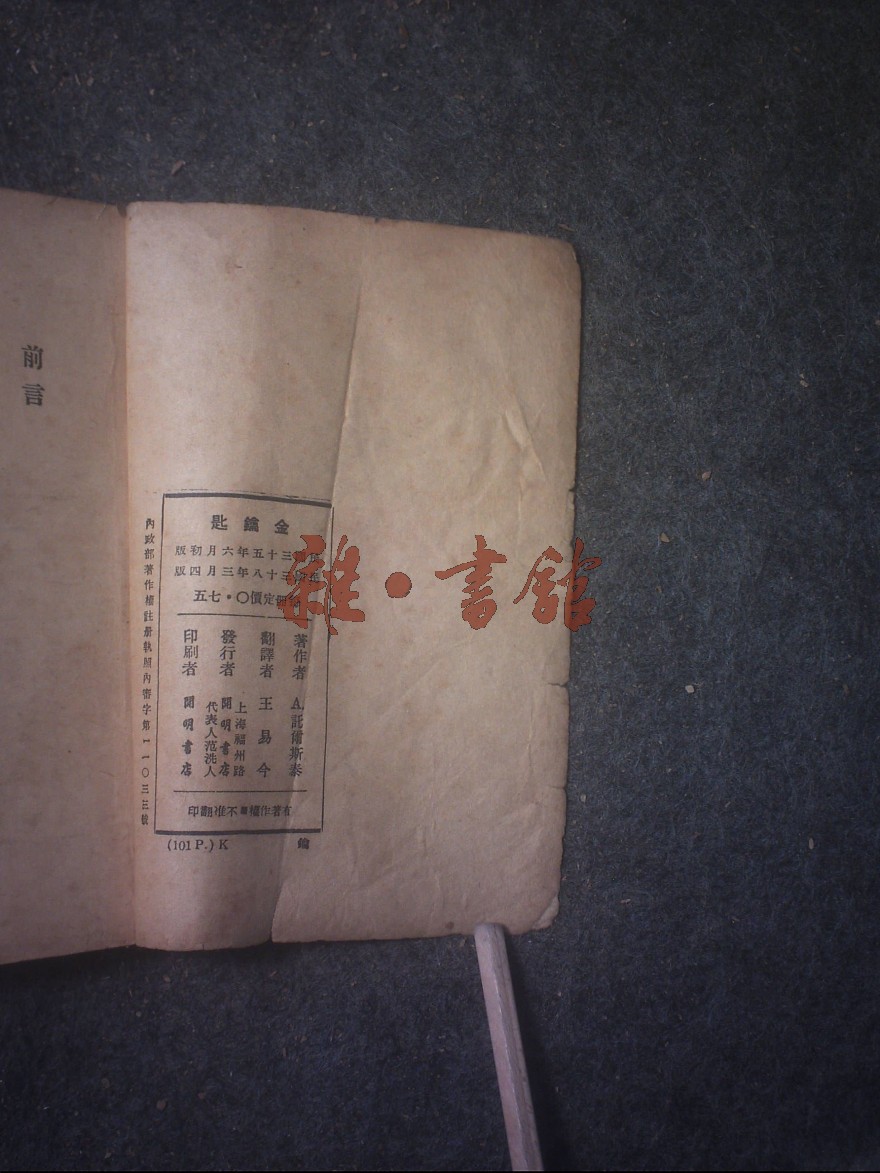 金鑰匙
三十五年六月初版
三十八年三月四版
冊定價〇・七五
著作者 A.託爾斯泰
翻譯者 王易今
發行者 上海福州路 開明書店 代表人范洗人
印刷者 開明書店
有著作權不准翻印
(101 P.) K
內政部著作權註冊執照內審字第一一〇三三號
前言
雜・書館